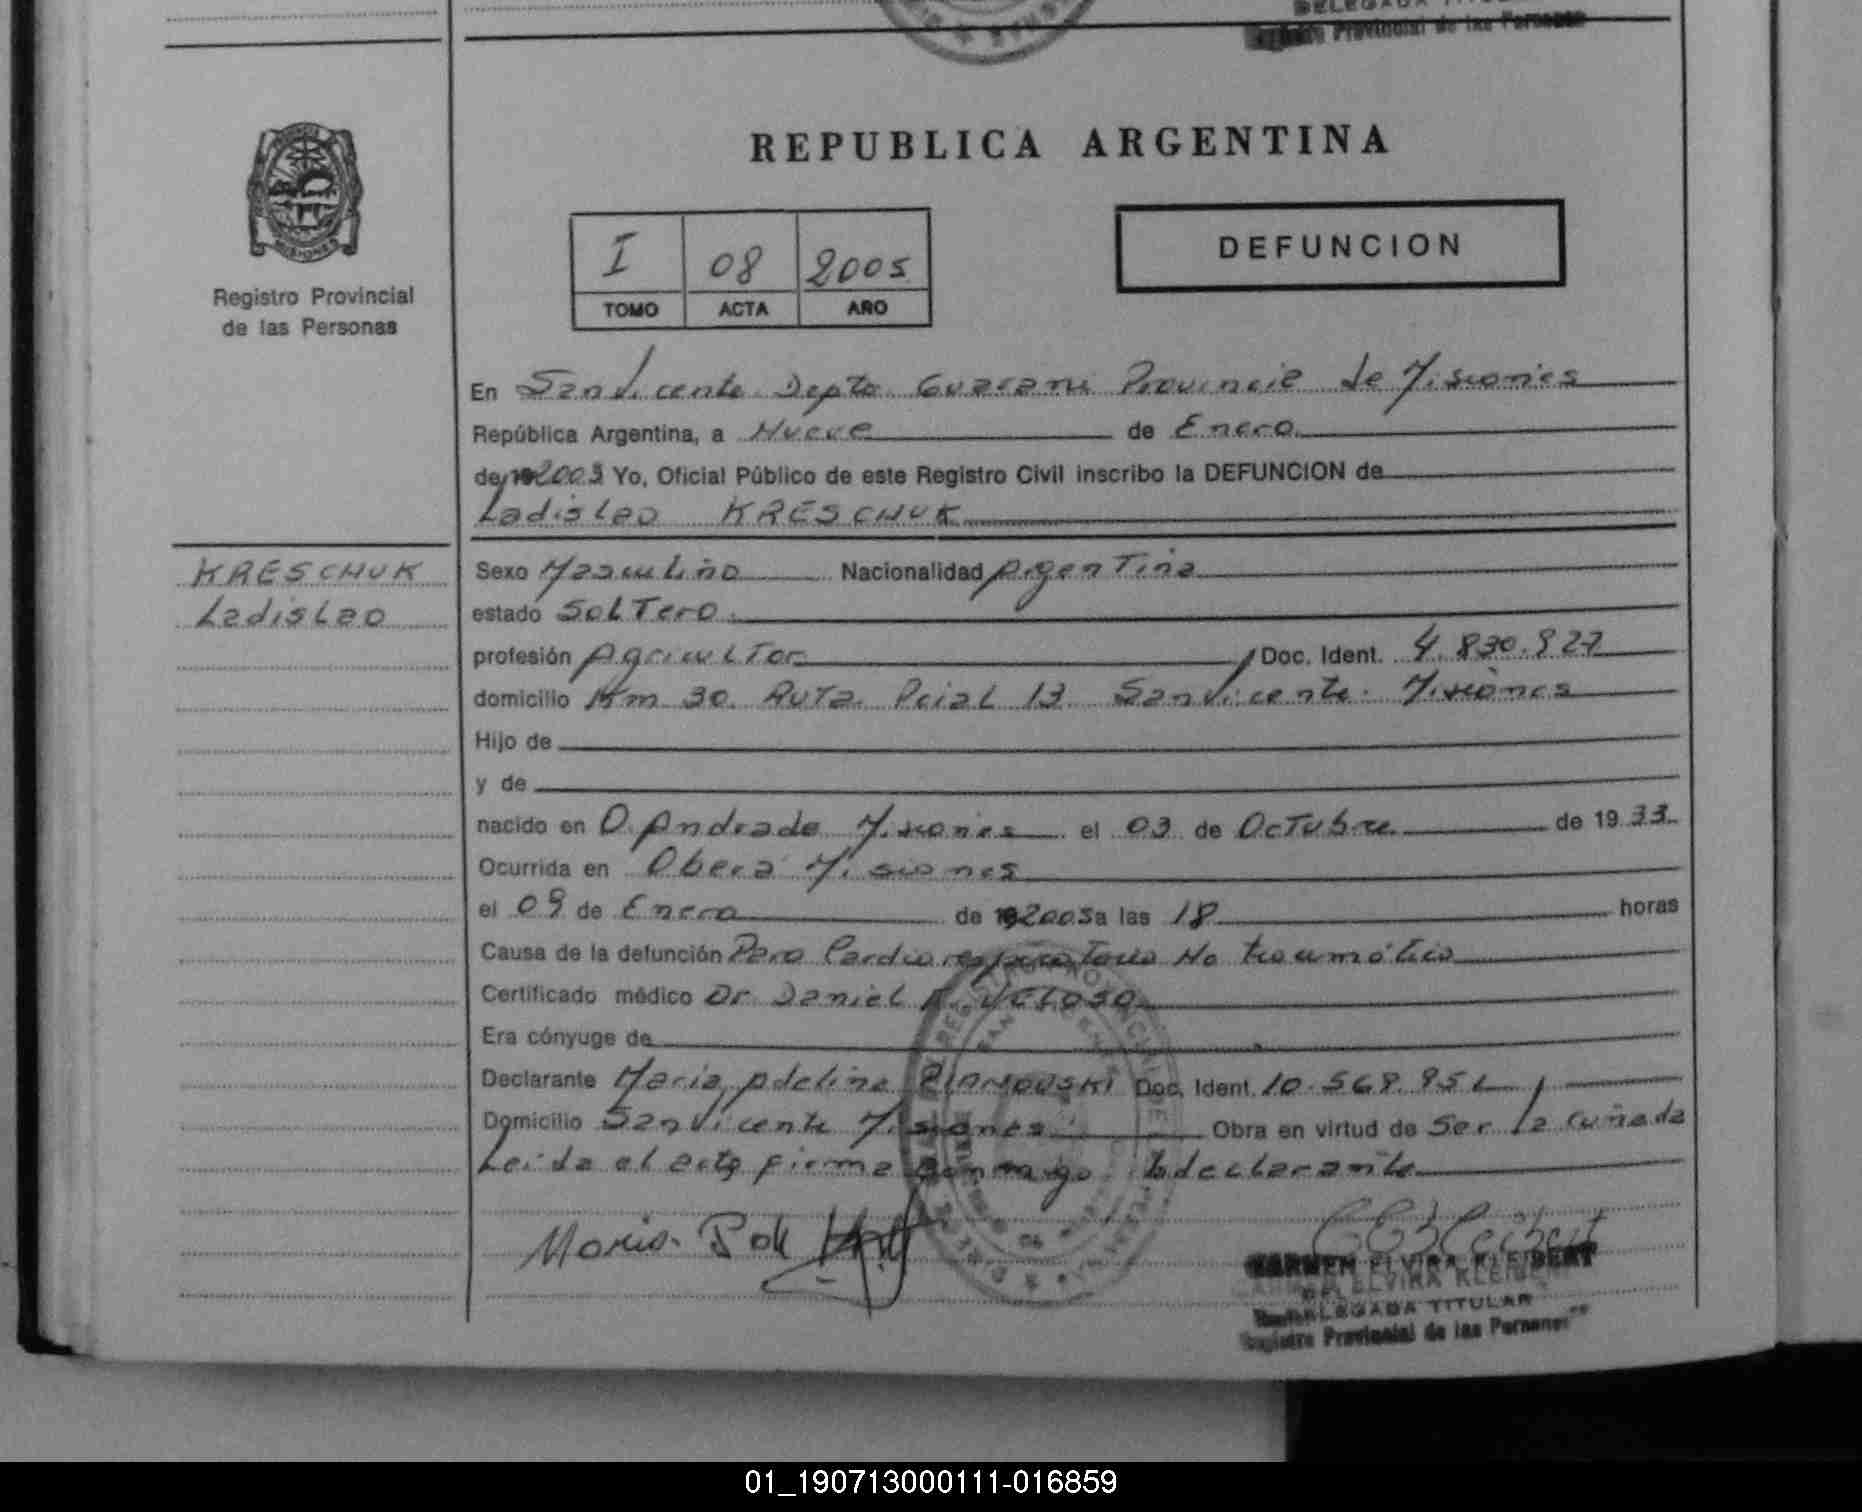 DELEGADA TITULAR
Registro Provincial de las Personas
REPUBLICA ARGENTINA
I 08 2005
TOMO ACTA AÑO
DEFUNCION
MISIONES
Registro Provincial
de las Personas
En San Vicente Depto Guarani Provincia de Misiones
República Argentina, a Nueve de Enero
de 2005 Yo, Oficial Público de este Registro Civil inscribo la DEFUNCION de
Ladislao KRESCHUK
KRESCHUK
Ladislao
Sexo Masculino Nacionalidad Argentina
estado Soltero
profesión Agricultor Doc. Ident. 4.830.827
domicilio Km 30 Ruta Pcial 13 San Vicente Misiones
Hijo de
y de
nacido en D. Andrade Misiones el 03 de Octubre de 1933
Ocurrida en Oberá Misiones
el 09 de Enero de 2005 a las 18 horas
Causa de la defunción Paro Cardio respiratorio No traumático
Certificado médico Dr Daniel VELOSO
Era cónyuge de
Declarante Maria Adelina Doc. Ident. 10.568.951
Domicilio San Vicente Misiones Obra en virtud de Ser la cuñada
Leida el acta firma conmigo la declarante
CARMEN ELVIRA KLEIBERT
DELEGADA TITULAR
Registro Provincial de las Personas
01_190713000111-016859